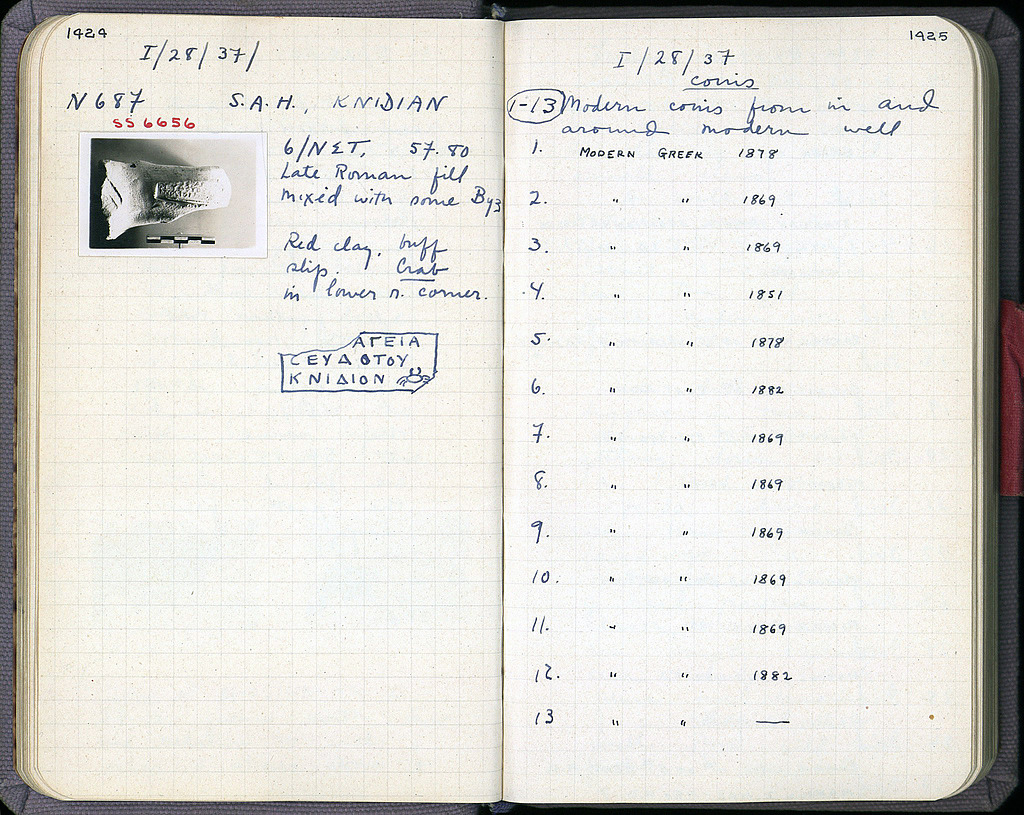 1424
I/28/37/
N 687 S.A.H., KNIDIAN
SS 6656
6/NΣT, 57.80
Late Roman fill
mixed with some Byz
Red clay, buff
slip. Crab
in lower r. corner.
ΑΓΕΙΑ
ΣΕΥΔΟΤΟΥ
ΚΝΙΔΙΟΝ
1425
I/28/37
coins
1-13 Modern coins from in and
around modern well
1. MODERN GREEK 1878
2. " " 1869
3. " " 1869
4. " " 1851
5. " " 1878
6. " " 1882
7. " " 1869
8. " " 1869
9. " " 1869
10. " " 1869
11. " " 1869
12. " " 1882
13 " " —